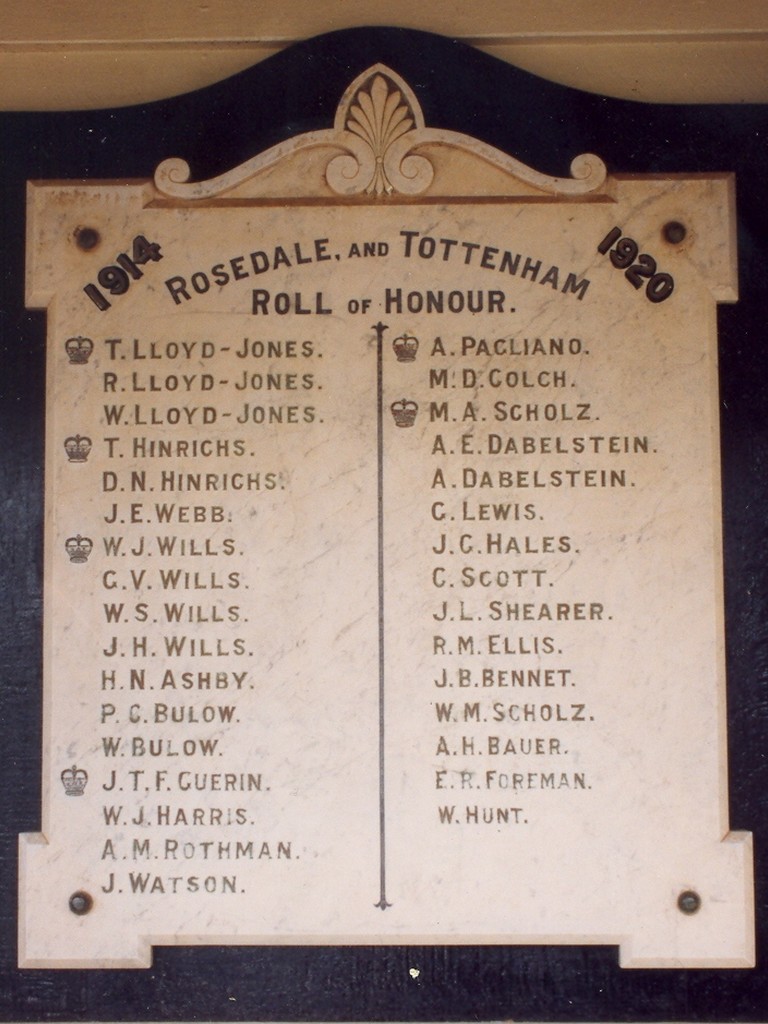 1914 ROSEDALE, AND TOTTENHAM 1920
ROLL OF HONOUR.
T. LLOYD-JONES.
R. LLOYD-JONES.
W. LLOYD-JONES.
T. HINRICHS.
D. N. HINRICHS.
J. E. WEBB.
W. J. WILLS.
G. V. WILLS.
W. S. WILLS.
J. H. WILLS.
H. N. ASHBY.
P. C. BULOW.
W. BULOW.
J. T. F. GUERIN.
W. J. HARRIS.
A. M. ROTHMAN.
J. WATSON.
A. PAGLIANO.
M. D. GOLCH.
M. A. SCHOLZ.
A. E. DABELSTEIN.
A. DABELSTEIN.
C. LEWIS.
J. C. HALES.
C. SCOTT.
J. L. SHEARER.
R. M. ELLIS.
J. B. BENNET.
W. M. SCHOLZ.
A. H. BAUER.
E. R. FOREMAN.
W. HUNT.